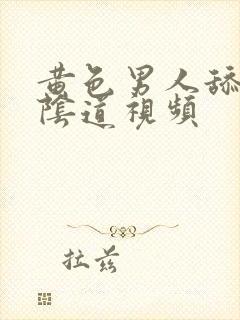 黄色男人舔
陰道視頻
拉兹